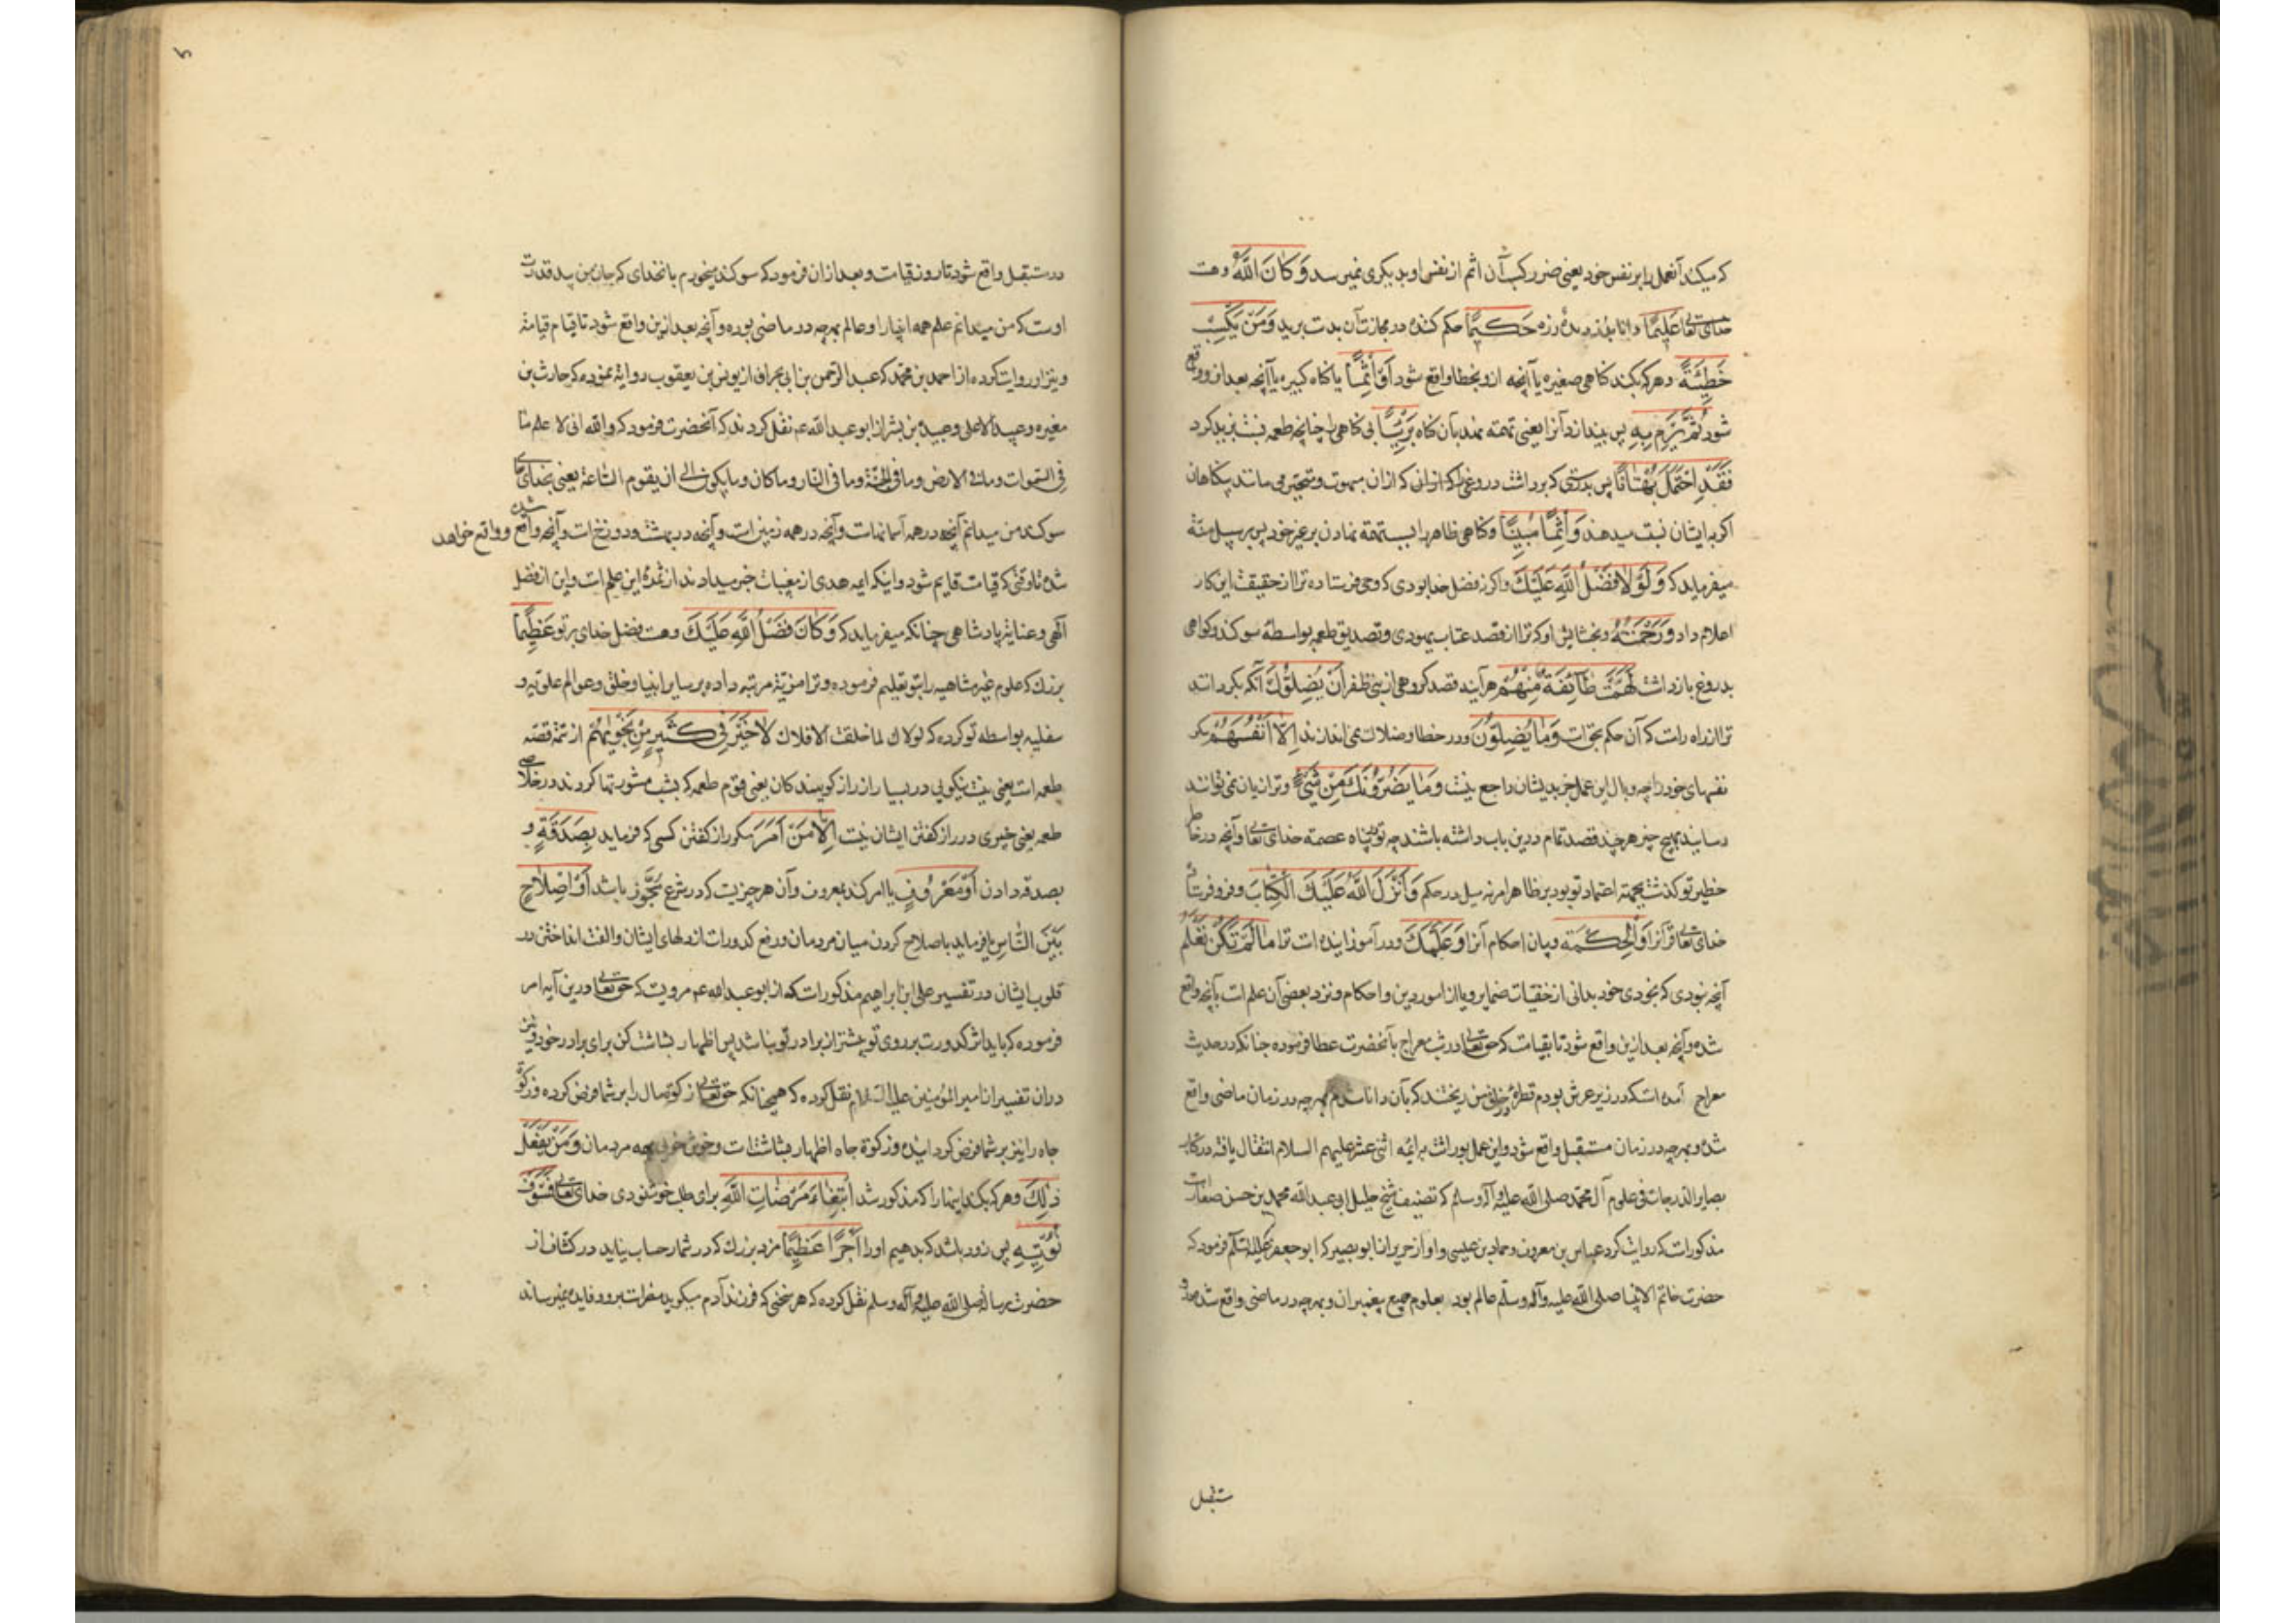 که میکند آنعمل را بر نفس خود یعنی ضرر کسب آن اثم از نفس او بدیگری نمیرسد وَكَانَ اللَّهُ و هست
خدای تعالی عَلِيمًا دانا بدزد بدهٔ زره حَكِيمًا حکم کننده در مجازات آن بدست برید وَمَنْ يَكْسِبْ
خَطِيئَةً و هر که بکند کناهی صغیره یا آنچه ازو بخطا واقع شود أَوْ إِثْمًا یا کناه کبیره یا آنچه بعمد ازو واقع
شود ثُمَّ يَرْمِ بِهِ پس بیندازد آنرا یعنی تهمت نهد بآن کناه بَرِيئًا بی کناهی را چنانچه طعمه نسبت بزید کرد
فَقَدِ احْتَمَلَ بُهْتَانًا پس بدرستی که برداشت دروغی را که ازان مبهوت و متحیر می مانند بیکناهان
اگر بایشان نسبت میدهند وَإِثْمًا مُبِينًا و کناهی ظاهر را بسبب تهمت نهادن بر غیر خود پس بر سبیل منت
میفرماید که وَلَوْلَا فَضْلُ اللَّهِ عَلَيْكَ و اگر نه فضل خدا بودی که وحی فرستاده ترا از حقیقت این کار
اعلام داد وَرَحْمَتُهُ و بخشایش او که ترا از قصد عتاب یهودی و تصدیق طعمه بواسطه سوکند و کواهی
بدروغ بازداشت لَهَمَّتْ طَائِفَةٌ مِنْهُمْ هر آینه قصد کرد کروهی از بنی ظفر أَنْ يُضِلُّوكَ آنکه بکردانند
ترا از راه راست که آن حکم بحق است وَمَا يُضِلُّونَ و در خطا و ضلالت نمی اندازند إِلَّا أَنْفُسَهُمْ مکر
نفسهای خود را چه وبال این عمل جز بدیشان راجع نیست وَمَا يَضُرُّونَكَ مِنْ شَيْءٍ و ترا زیان نمی توانند
رسانید بهیچ چیز هر چند قصد تمام درین باب داشته باشند چه تو در پناه عصمة خدای تعالی و آنچه در خاطر
خطیر تو کذشت بجهة اعتماد تو بود بر ظاهر امر نه میل در حکم وَأَنْزَلَ اللَّهُ عَلَيْكَ الْكِتَابَ و فرو فرستاد
خدای تعالی قرآنرا وَالْحِكْمَةَ و بیان احکام آنرا وَعَلَّمَكَ و در آموزانیده است ترا مَا لَمْ تَكُنْ تَعْلَمُ
آنچه نبودی که بخودی خود بدانی از خفیات ضمایر و یا از امور دین و احکام و نزد بعضی آن علم است بآنچه واقع
شده و آنچه بعد ازین واقع شود تا بقیامت که حق تعالی در شب معراج بآنحضرت عطا فرموده چنانکه در حدیث
معراج آمده است که در زیر عرش بودم قطرهٔ در حلق من ریختند که بآن دانا شدم بهرچه در زمان ماضی واقع
شده و بهرچه در زمان مستقبل واقع شود و این عمل بوراثت به ائمه اثنی عشر علیهم السلام انتقال یافته در کتاب
بصایر الدرجات فی علوم آل محمد صلی الله علیه و آله وسلم که تصنیف شیخ جلیل ابی عبد الله محمد بن حسن صفار است
مذکور است که روایت کرد عباس بن معروف و حماد بن عیسی و او از حریر از ابو بصیر که ابو جعفر علیه السلام فرمود که
حضرت خاتم الانبیا صلی الله علیه وآله وسلم عالم بود بعلوم جمیع پیغمبران و بهرچه در ماضی واقع شده و
ستقبل
۵
در مستقبل واقع شود تا روز قیامت و بعد ازان فرمود که سوکند میخورم بانخدای که جان من بید قدرت
اوست که من میدانم علم همه انبیا را و عالم بهرچه در ماضی بوده و آنچه بعد ازین واقع شود تا قیام قیامة
و نیز او روایت کرده از احمد بن محمد که عبد الرحمن بن ابی نجران از یونس بن یعقوب روایة نموده که حارث بن
مغیره و عبید الاعلی و عبیدة بن بشر از ابو عبد الله ع نقل کردند که آنحضرت فرمود که والله انی لا علم ما
فی السموات وما فی الارض وما فی الجنة وما فی النار وما کان وما یکون الی ان یقوم الساعة یعنی بخدای
سوکند من میدانم آنچه در همه آسمانهاست و آنچه در همه زمین است و آنچه در بهشت و دوزخ است و آنچه واقع شده و واقع خواهد
شد تا وقتی که قیامت قایم شود و اینکه ایمه هدی از مغیبات خبر میدادند از ثمرهٔ این علم است و این از فضل
الهی و عنایت پادشاهی چنانکه میفرماید که وَكَانَ فَضْلُ اللَّهِ عَلَيْكَ و هست فضل خدای بر تو عَظِيمًا
بزرك که علوم غیر متناهیه را بتو تعلیم فرموده و ترا مزیت مرتبه داده بر سایر انبیا و خلق و عوالم علویه و
سفلیه بواسطه تو کرده که لولاك لما خلقت الافلاك لَا خَيْرَ فِي كَثِيرٍ مِنْ نَجْوَاهُمْ از تتمه قصه
طعمه است یعنی نیست نیکویی در بسیار از راز کویندکان یعنی قوم طعمه که بشب مشورتها کردند در خلاص
طعمه یعنی خیری در راز کفتن ایشان نیست إِلَّا مَنْ أَمَرَ مکر راز کفتن کسی که فرماید بِصَدَقَةٍ و
بصدقه دادن أَوْ مَعْرُوفٍ یا امر کند بمعروف و آن هر چیزیست که در شرع مجوز باشد أَوْ إِصْلَاحٍ
بَيْنَ النَّاسِ یا فرماید باصلاح کردن میان مردمان و رفع کدورات از دلهای ایشان و الفت انداختن در
قلوب ایشان در تفسیر علی ابن ابراهیم مذکور است که از ابو عبد الله ع مرویست که حق تعالی درین آیه امر
فرموده که باید اثر کدورت بر روی تو بیشتر از برادر تو نباشد پس اظهار بشاشت کن برای برادر خود و نیز
دران تفسیر از امیر المؤمنین علیه السلام نقل کرده که همچنانکه حق تعالی زکوة مال را بر شما فرض کرده زکوة
جاه را نیز بر شما فرض کردانیده و زکوة جاه اظهار بشاشت است و خوش خویی بجه مردمان وَمَنْ يَفْعَلْ
ذَلِكَ و هر که بکند اینها را که مذکور شد ابْتِغَاءَ مَرْضَاتِ اللَّهِ برای طلب خوشنودی خدای تعالی فَسَوْفَ
نُؤْتِيهِ پس زود باشد که بدهیم او را أَجْرًا عَظِيمًا مزد بزرك که در شمار حساب نیاید در کشاف از
حضرت رسالة صلی الله علیه وآله وسلم نقل کرده که هر سخنی که فرزند آدم میکوید مضر است برو و فایده نمیرساند